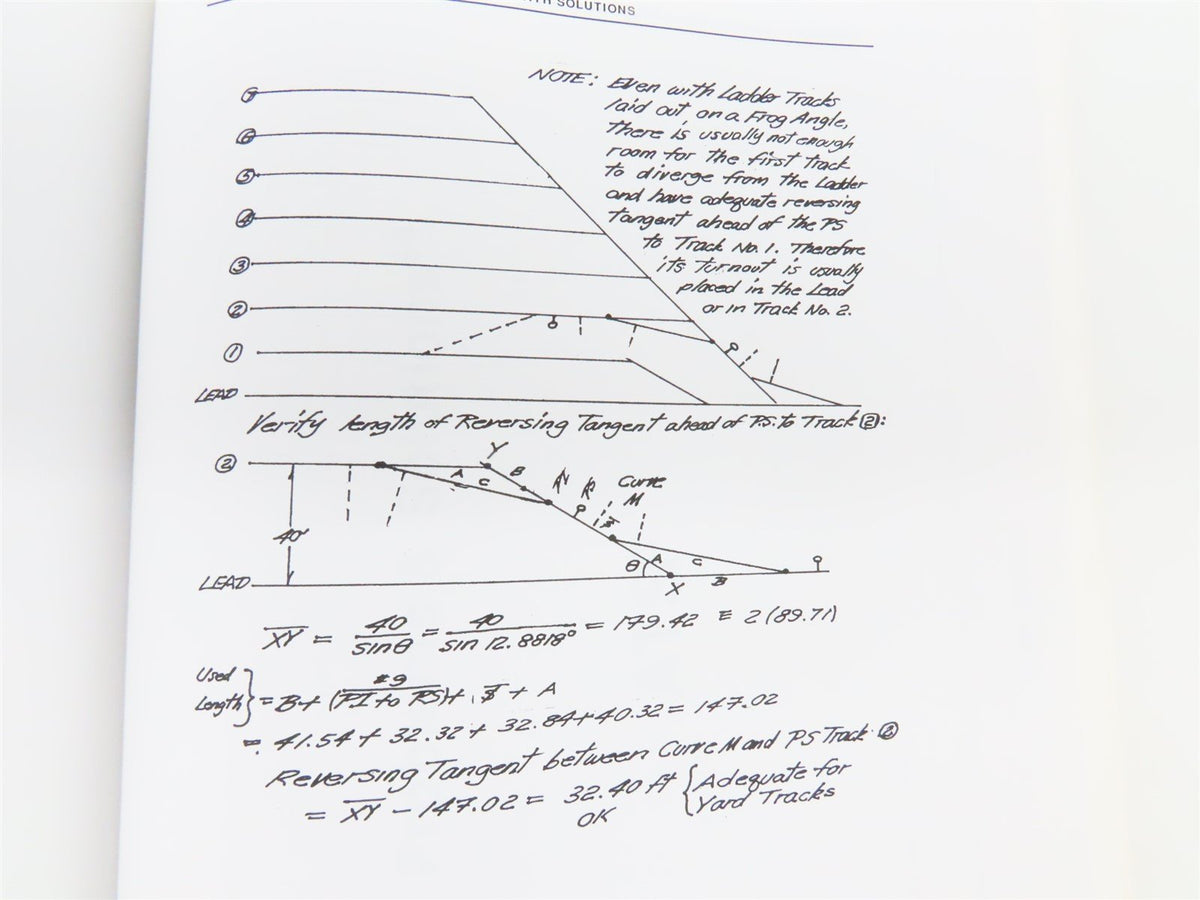 SOLUTIONS
NOTE: Even with Ladder Tracks
laid out, on a Frog Angle,
there is usually not enough
room for the first track
to diverge from the Ladder
and have adequate reversing
tangent ahead of the PS
to Track No. 1. Therefore
its turnout is usually
placed in the Lead
or in Track No. 2.
7
6
5
4
3
2
1
LEAD
Verify length of Reversing Tangent ahead of P.S. to Track 2:
2
Y
A
B
C
Curve
M
40'
θ
A
C
LEAD
X
B
XY = 40/sinθ = 40/sin 12.8818° = 179.42 = 2(89.71)
Used
Length} = B + (#9 PI to PS) + + A
= 41.54 + 32.32 + 32.84 + 40.32 = 147.02
Reversing Tangent between Curve M and PS Track 2
= XY - 147.02 = 32.40 ft {Adequate for
Yard Tracks
OK